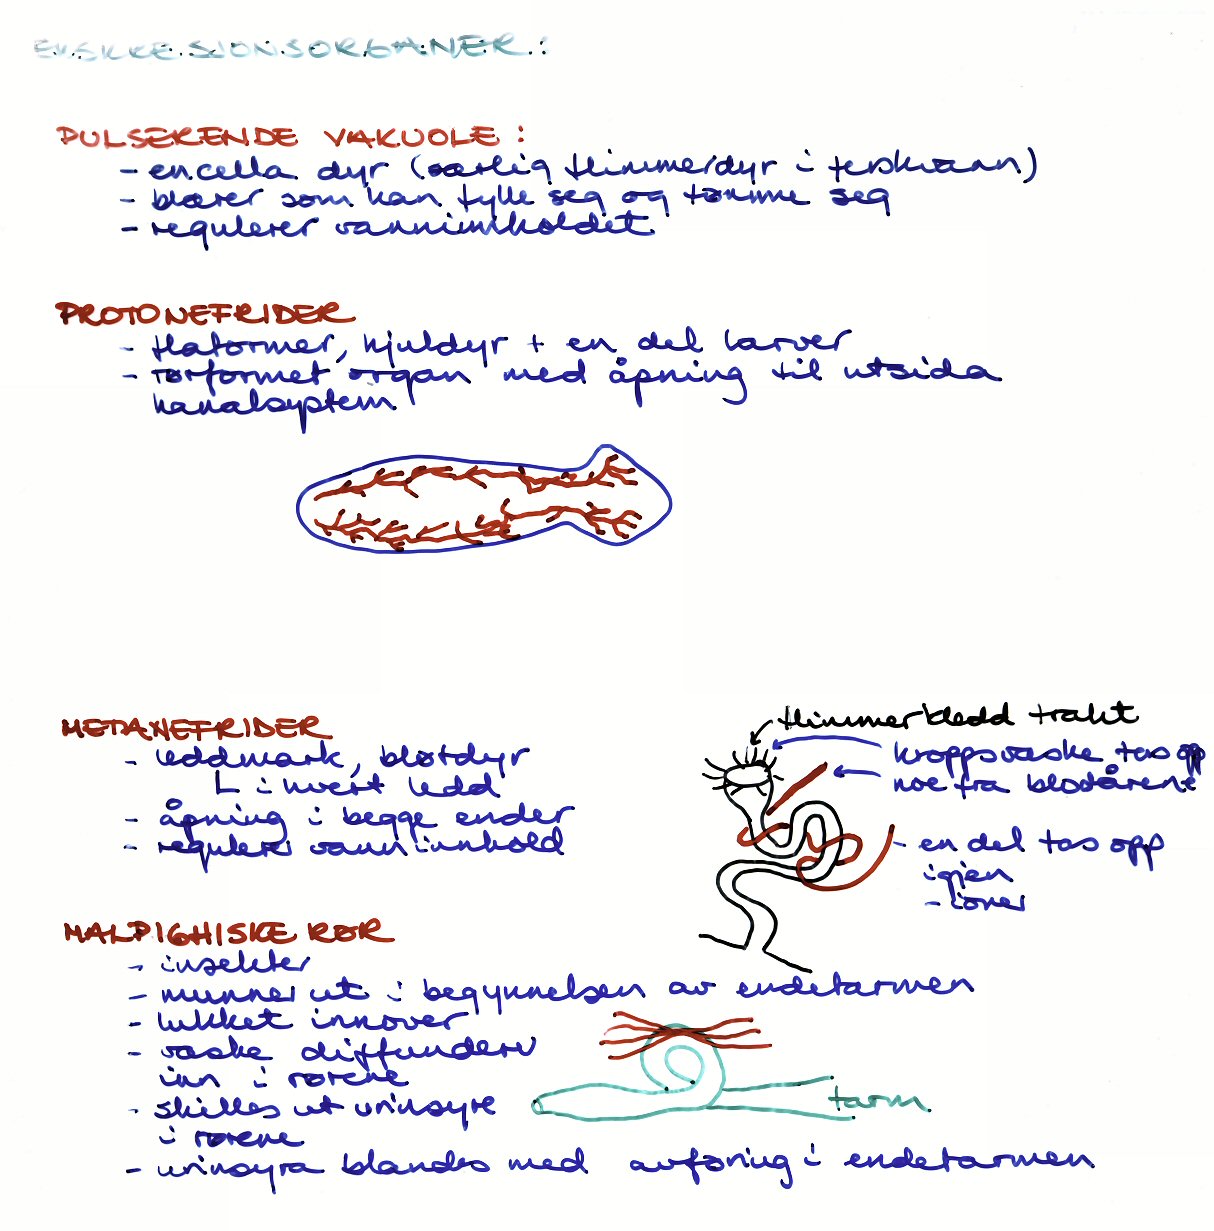 EKSKRESJONSORGANER:
PULSERENDE VAKUOLE:
- encella dyr (særlig flimmerdyr i ferskvann)
- blærer som kan fylle seg og tømme seg
- regulerer vanninnholdet.
PROTONEFRIDER
- flatormer, hjuldyr + en del larver
- rørformet organ med åpning til utsida
kanalsystem.
METANEFRIDER
- leddmark, bløtdyr
L i hvert ledd
- åpning i begge ender
- regulerer vanninnhold
flimmerkledd trakt
kroppsvæske tas opp
noe fra blodårene
- en del tas opp
igjen
- ioner
MALPIGHISKE RØR
- insekter
- munner ut i begynnelsen av endetarmen
- lukket innover
- væske diffunderer
inn i rørene
- skilles ut urinsyre
i rørene
tarm
- urinsyra blandes med avføring i endetarmen